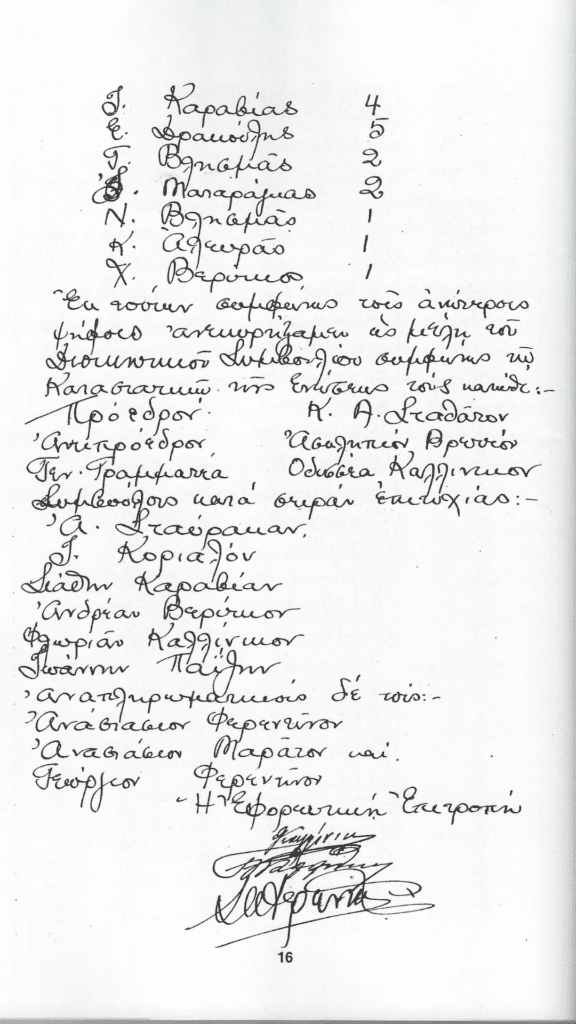 Γ. Καραβίας 4
Ε. Δρακούλης 5
Γ. Βλησμᾶς 2
Σ. Ματαράγκας 2
Ν. Βλησμᾶς 1
Κ. Ἀλευρᾶς 1
Χ. Βερύκιος 1
Ἐκ τούτων συμφώνως τοῖς ἀνωτέροις
ψήφοις ἀνεκυρήξαμεν ὡς μέλη τοῦ
Διοικητικοῦ Συμβουλίου συμφώνως τῷ
Καταστατικῷ τῆς Ενώσεως τοὺς κατωθι:-
Πρόεδρον Κ. Α. Σταθάτον
Ἀντιπρόεδρον Ἀσκληπιόν Βρεττόν
Γεν. Γραμματέα Οδυσσέα Καλλινικον
Συμβούλους κατά σειράν ἐπιτυχίας:-
Ἀ. Σταύρακαν,
Γ. Κοριαλόν
Στάθην Καραβίαν
Ἀνδρέαν Βερύκιον
Φλωριάν Καλλίνικον
Ἰωάννην Παΐζην
Ἀναπληρωματικούς δέ τούς:-
Ἀνάστασιον Φερεντῖνον
Ἀναστάσιον Μαρᾶτον καί
Γεώργιον Φερεντῖνον
Ἡ Ἐφορευτική Ἐπιτροπή
16